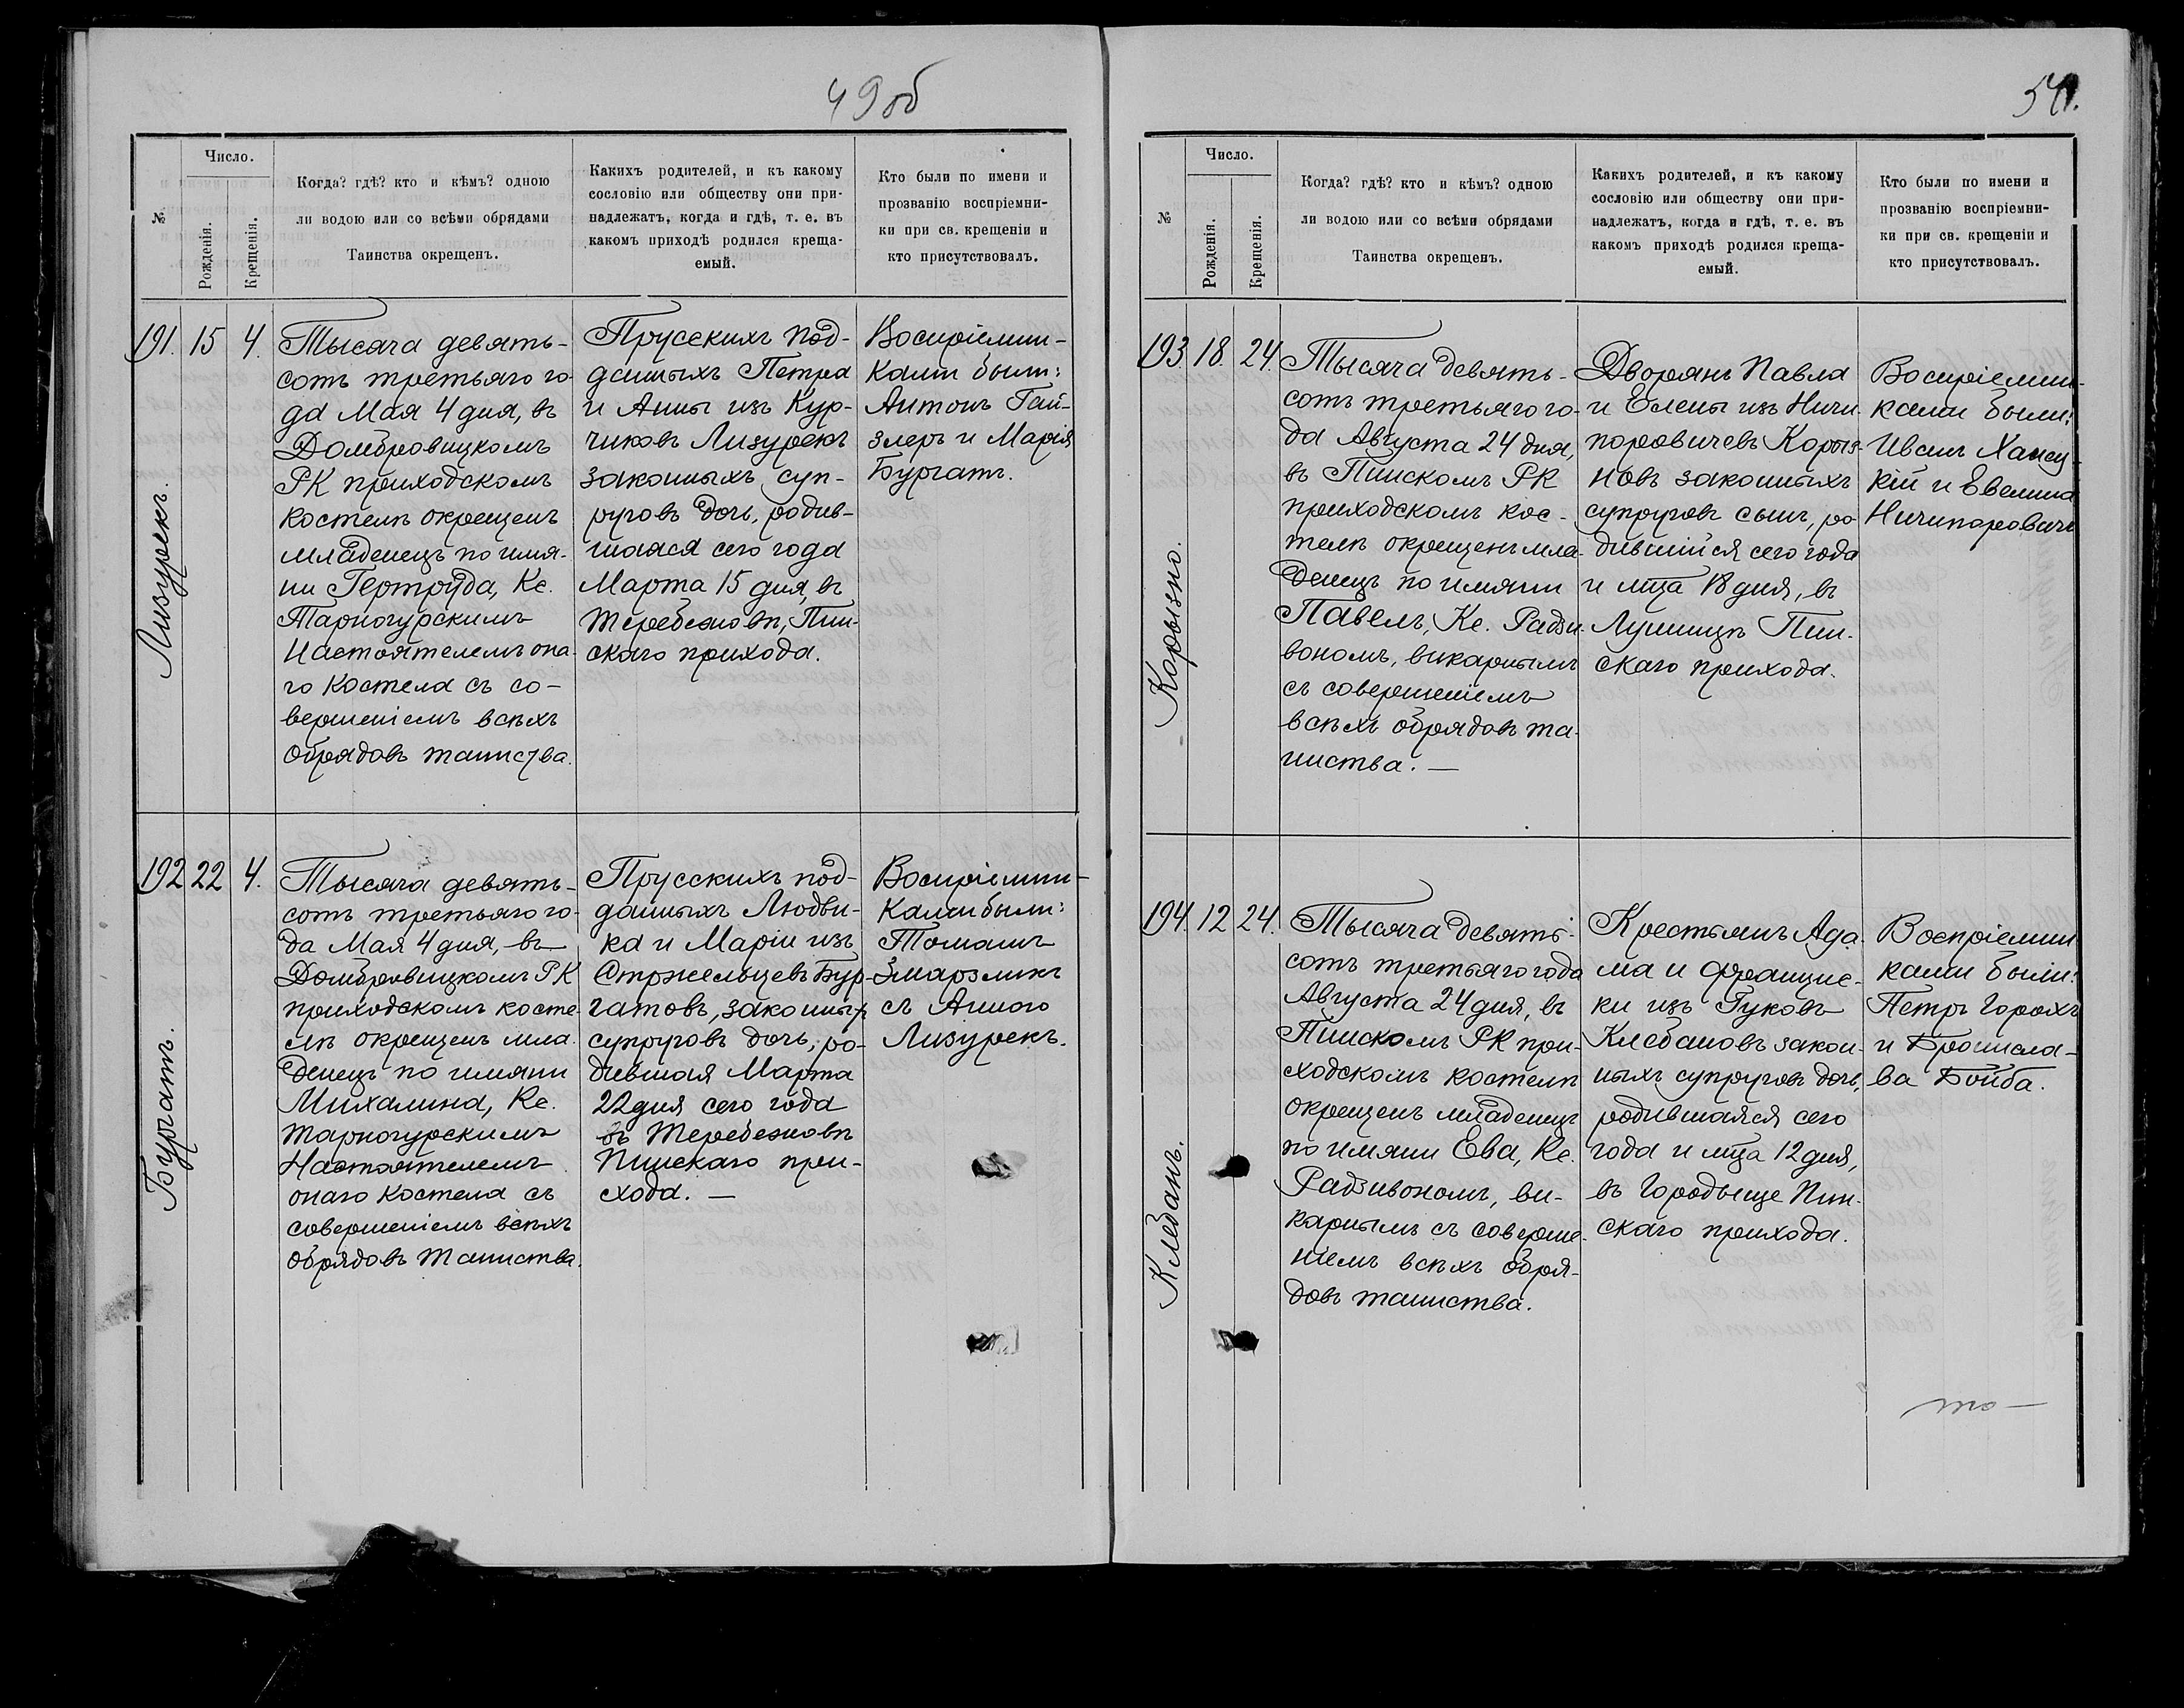 49 об
№
Число.
Рожденія.
Крещенія.
Когда? гдѣ? кто и кѣмъ? одною
ли водою или со всѣми обрядами
Таинства окрещенъ.
Какихъ родителей, и къ какому
сословію или обществу они при-
надлежатъ, когда и гдѣ, т. е. въ
какомъ приходѣ родился креща-
емый.
Кто были по имени и
прозванію воспріемни-
ки при св. крещеніи и
кто присутствовалъ.
191. 15 4.
Лизурекъ.
Тысяча девять-
сотъ третьяго го-
да Мая 4 дня, въ
Домбровицкомъ
РК приходскомъ
костелѣ окрещенъ
младенецъ по имя-
ни Гертруда, Кс.
Тарногурскимъ
Настоятелемъ она-
го костела съ со-
вершеніемъ всѣхъ
обрядовъ таинства.
Прусскихъ под-
данныхъ Петра
и Анны изъ Кур-
чиковъ Лизурекъ
законныхъ суп-
руговъ дочь, родив-
шаяся сего года
Марта 15 дня, въ
Теребежовѣ, Пин-
скаго прихода.
Воспріемни-
ками были:
Антонъ Гай-
злеръ и Марія
Бургатъ.
192 22 4.
Бургатъ.
Тысяча девять-
сотъ третьяго го-
да Мая 4 дня, въ
Домбровицкомъ РК
приходскомъ косте-
лѣ окрещенъ мла-
денецъ по имяни
Михалина, Кс.
Тарногурскимъ
Настоятелемъ
онаго костела съ
совершеніемъ всѣхъ
обрядовъ таинства.
Прусскихъ под-
данныхъ Людви-
ка и Маріи изъ
Стржельцевъ Бур-
гатовъ, законныхъ
супруговъ дочь, ро-
дившая Марта
22 дня сего года
въ Теребежовѣ
Пинскаго при-
хода. —
Воспріемни-
ками были:
Томашъ
Змарзликъ
съ Анною
Лизурекъ.
№
Число.
Рожденія.
Крещенія.
Когда? гдѣ? кто и кѣмъ? одною
ли водою или со всѣми обрядами
Таинства окрещенъ.
Какихъ родителей, и къ какому
сословію или обществу они при-
надлежатъ, когда и гдѣ, т. е. въ
какомъ приходѣ родился креща-
емый.
Кто были по имени и
прозванію воспріемни-
ки при св. крещеніи и
кто присутствовалъ.
193 18. 24.
Корызно.
Тысяча девять-
сотъ третьяго го-
да Августа 24 дня,
въ Пинскомъ РК
приходскомъ кос-
телѣ окрещенъ мла-
денецъ по имяни
Павелъ, Кс. Радзи-
вономъ, викарнымъ
съ совершеніемъ
всѣхъ обрядовъ та-
инства. —
Дворянъ Павла
и Елены изъ Ничи-
поровичевъ Корыз-
новъ законныхъ
супруговъ сынъ, ро-
дившійся сего года
и мца 18 дня, въ
Лунницѣ Пин-
скаго прихода.
Воспріемни-
ками были:
Иванъ
и Евелина
Ничипоровичъ
194. 12 24.
Клебанъ.
Тысяча девять-
сотъ третьяго года
Августа 24 дня, въ
Пинскомъ РК при-
ходскомъ костелѣ
окрещенъ младенецъ
по имяни Ева, Кс.
Радзивономъ, ви-
карнымъ съ соверше-
ніемъ всѣхъ обря-
довъ таинства.
Крестьянъ Ада-
ма и Францис-
ки изъ Гуковъ
Клебановъ закон-
ныхъ супруговъ дочь,
родившаяся сего
года и мца 12 дня,
въ Городыще Пин-
скаго прихода.
Воспріемни-
ками были:
Петръ Горохъ
и Бронисла-
ва Бойба.